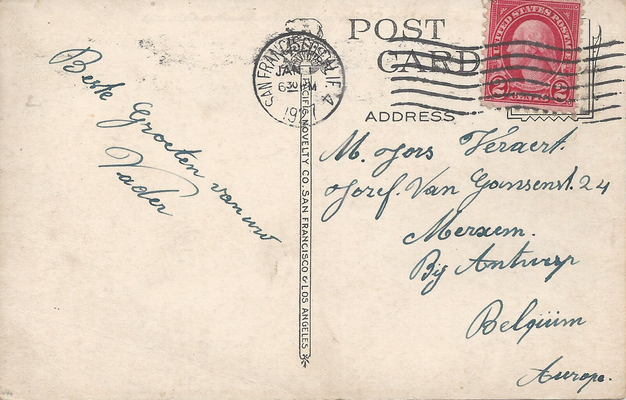 POST
CARD
UNITED STATES POSTAGE
2 2
SAN FRANCISCO CALIF. 4
JAN
6 30 PM
ADDRESS
Beste Groeten van uw
Vader
PACIFIC NOVELTY CO. SAN FRANCISCO & LOS ANGELES
M. Jors Veraert.
Jozef. Van Gansenst. 24
Merxem.
Bij Antwerp
Belgium
Aurope.